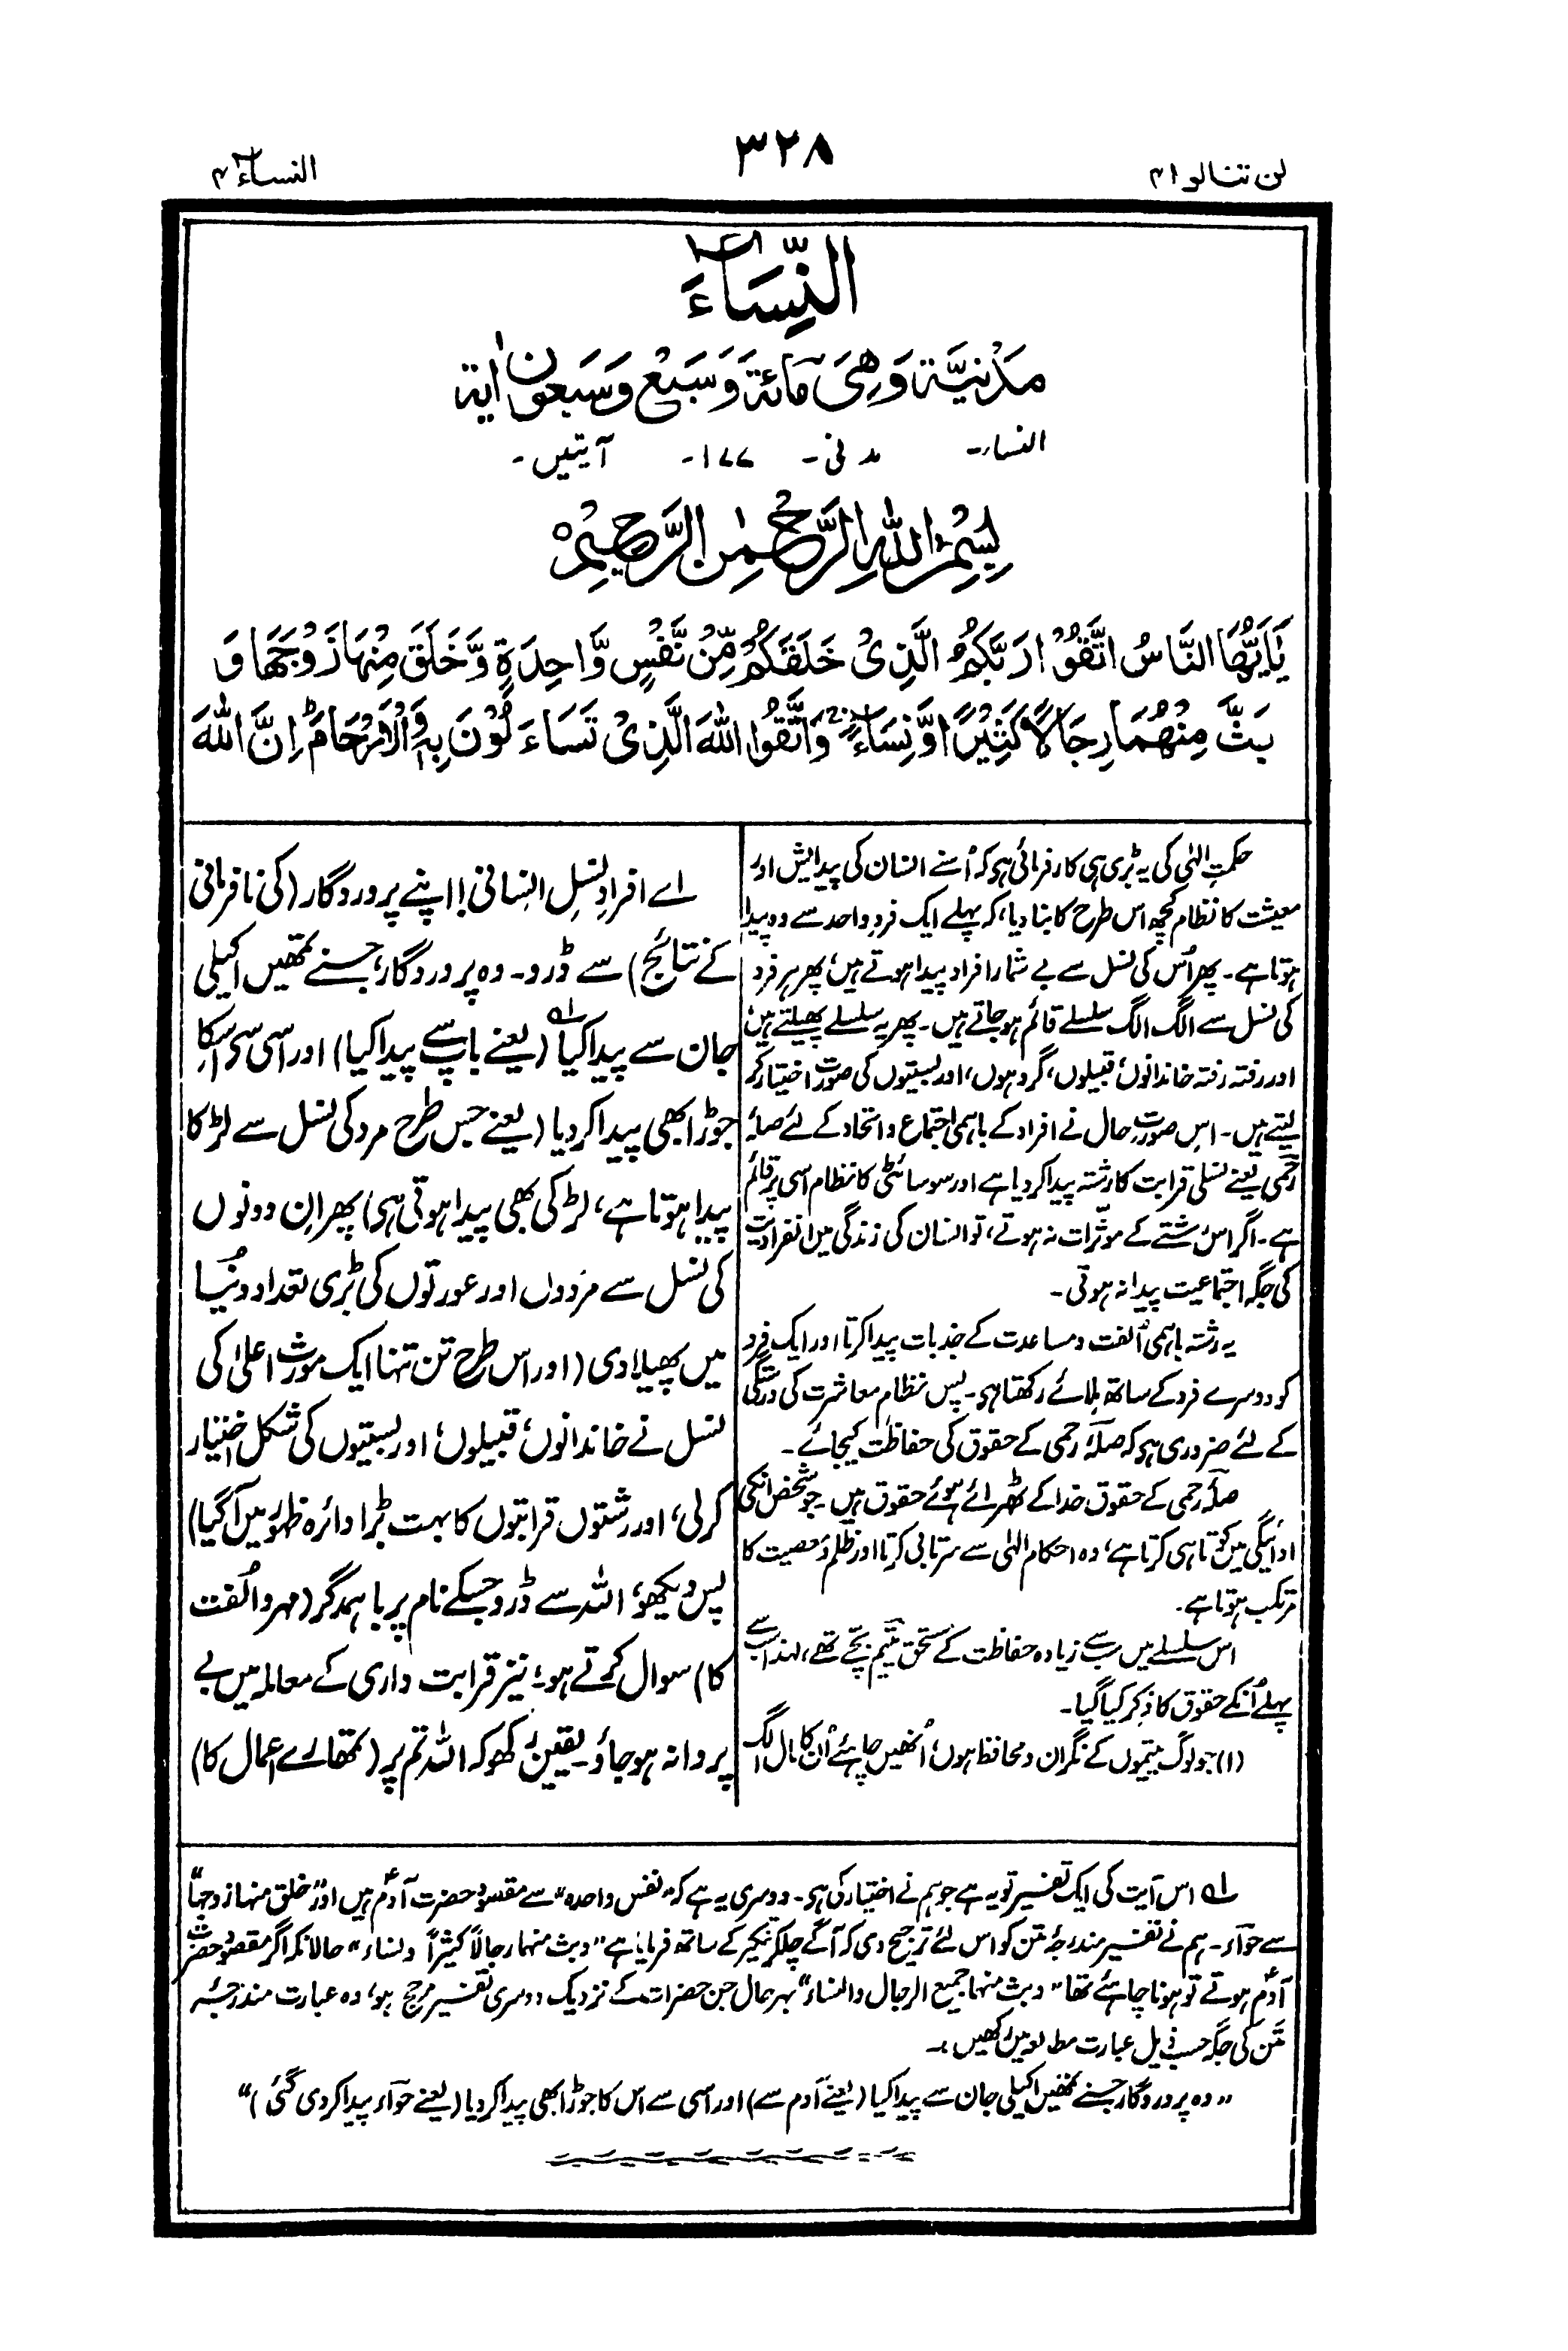 لن تنالوا ۴
۳۲۸
النساء ۴
النِّسَاءَ
مَدَنِيَّة وَهِیَ مِائة وَّسَبْعٌ وَسَبعون اٰية
النساء۔ مدنی۔ ۱۷۷۔ آیتیں۔
بِسْمِ اللهِ الرَّحْمٰنِ الرَّحِيْمِ
يٰاَيُّهَا النَّاسُ اتَّقُوْا رَبَّكُمُ الَّذِیْ خَلَقَكُمْ مِّنْ نَّفْسٍ وَّاحِدَةٍ وَّخَلَقَ مِنْهَا زَوْجَهَا وَ
بَثَّ مِنْهُمَا رِجَالًا كَثِيْرًا وَّنِسَاءً ۚ وَاتَّقُوا اللهَ الَّذِیْ تَسَاءَلُوْنَ بِهٖ وَالْاَرْحَامَ ؕ اِنَّ اللهَ
حکمتِ الٰہی کی یہ بڑی ہی کارفرمائی ہو کہ اُسنے انسان کی پیدایش اور
معیشت کا نظام کچھ اس طرح کا بنا دیا، کہ پہلے ایک فردِ واحد سے وہ پیدا
ہوتا ہے۔ پھر اُس کی نسل سے بے شمار افراد پیدا ہوتے ہیں؛ پھر ہر فرد
کی نسل سے الگ الگ سلسلے قائم ہو جاتے ہیں۔ پھر یہ سلسلے پھیلتے ہیں؛
اور رفتہ رفتہ خاندانوں، قبیلوں، گروہوں، اور بستیوں کی صورت اختیار کر
لیتے ہیں۔ اس صورتِ حال نے افراد کے باہمی اجتماع و اتحاد کے لئے صلۂ
رحمی یعنے نسلی قرابت کا رشتہ پیدا کر دیا ہے اور سوسائٹی کا نظام اسی پر قائم
ہے۔ اگر اس رشتے کے موثّرات نہ ہوتے، تو انسان کی زندگی میں انفرادیت
کی جگہ اجتماعیت پیدا نہ ہوتی۔
یہ رشتہ باہمی اُلفت و مساعدت کے جذبات پیدا کرتا اور ایک فرد
کو دوسرے فرد کے ساتھ ملائے رکھتا ہو۔ پس نظام معاشرت کی درستگی
کے لئے ضروری ہو کہ صلۂ رحمی کے حقوق کی حفاظت کیجائے۔
صلۂ رحمی کے حقوق خدا کے ٹھرائے ہوئے حقوق ہیں۔ جو شخص انکی
ادائیگی میں کوتاہی کرتا ہے، وہ احکام الٰہی سے سرتابی کرتا اور ظلم و معصیت کا
مرتکب ہوتا ہے۔
اس سلسلے میں سب سے زیادہ حفاظت کے مستحق یتیم بچّے تھے، لہذا سب سے
پہلے اُنکے حقوق کا ذِکر کیا گیا۔
(۱) جو لوگ یتیموں کے نگران و محافظ ہوں؛ اُنھیں چاہئے اُن کا مال الگ
اے افرادِ نسلِ انسانی! اپنے پروردگار (کی نافرمانی
کے نتائج) سے ڈرو۔ وہ پروردگار، جسنے تمھیں اکیلی
جان سے پیدا کیا ۱؎ (یعنے باپ سے پیدا کیا) اور اسی سے اسکا
جوڑا بھی پیدا کر دیا (یعنے جس طرح مرد کی نسل سے لڑکا
پیدا ہوتا ہے، لڑکی بھی پیدا ہوتی ہو) پھر اِن دونوں
کی نسل سے مردوں اور عورتوں کی بڑی تعداد دنیا
میں پھیلا دی (اور اس طرح تن تنہا ایک مورث اعلیٰ کی
نسل نے خاندانوں؛ قبیلوں؛ اور بستیوں کی شکل اختیار
کر لی؛ اور رشتوں قرابتوں کا بہت بڑا دائرہ ظہور میں آگیا)
پس دیکھو؛ اللہ سے ڈرو جسکے نام پر باہمدگر (مہر و اُلفت
کا) سوال کرتے ہو؛ نیز قرابت داری کے معاملہ میں بے
پروا نہ ہو جاؤ۔ یقین رکھو کہ اللہ تم پر (تمھارے اعمال کا)
۱؎ اس آیت کی ایک تفسیر تو یہ ہے جو ہم نے اختیار کی ہو۔ دوسری یہ ہے کہ "نفس واحدہ" سے مقصود حضرت آدمؑ ہیں اور "خلق منہا زوجہا"
سے حوّاء۔ ہم نے تفسیر مندرجۂ متن کو اس لئے ترجیح دی کہ آگے چلکر تنکیر کے ساتھ فرمایا ہے "وبث منہما رجالاً کثیراً ونساء" حالانکہ اگر مقصود حضرت
آدمؑ ہوتے تو ہونا چاہئے تھا "وبث منہما جمیع الرجال والنساء" بہرحال جن حضرات کے نزدیک دوسری تفسیر مرجح ہو، وہ عبارت مندرجۂ
متن کی جگہ حسب ذیل عبارت مطالعہ میں رکھیں:۔
"وہ پروردگار جسنے تمھیں اکیلی جان سے پیدا کیا (یعنے آدم سے) اور اسی سے اس کا جوڑا بھی پیدا کر دیا (یعنے حوّاء پیدا کر دی گئی)"